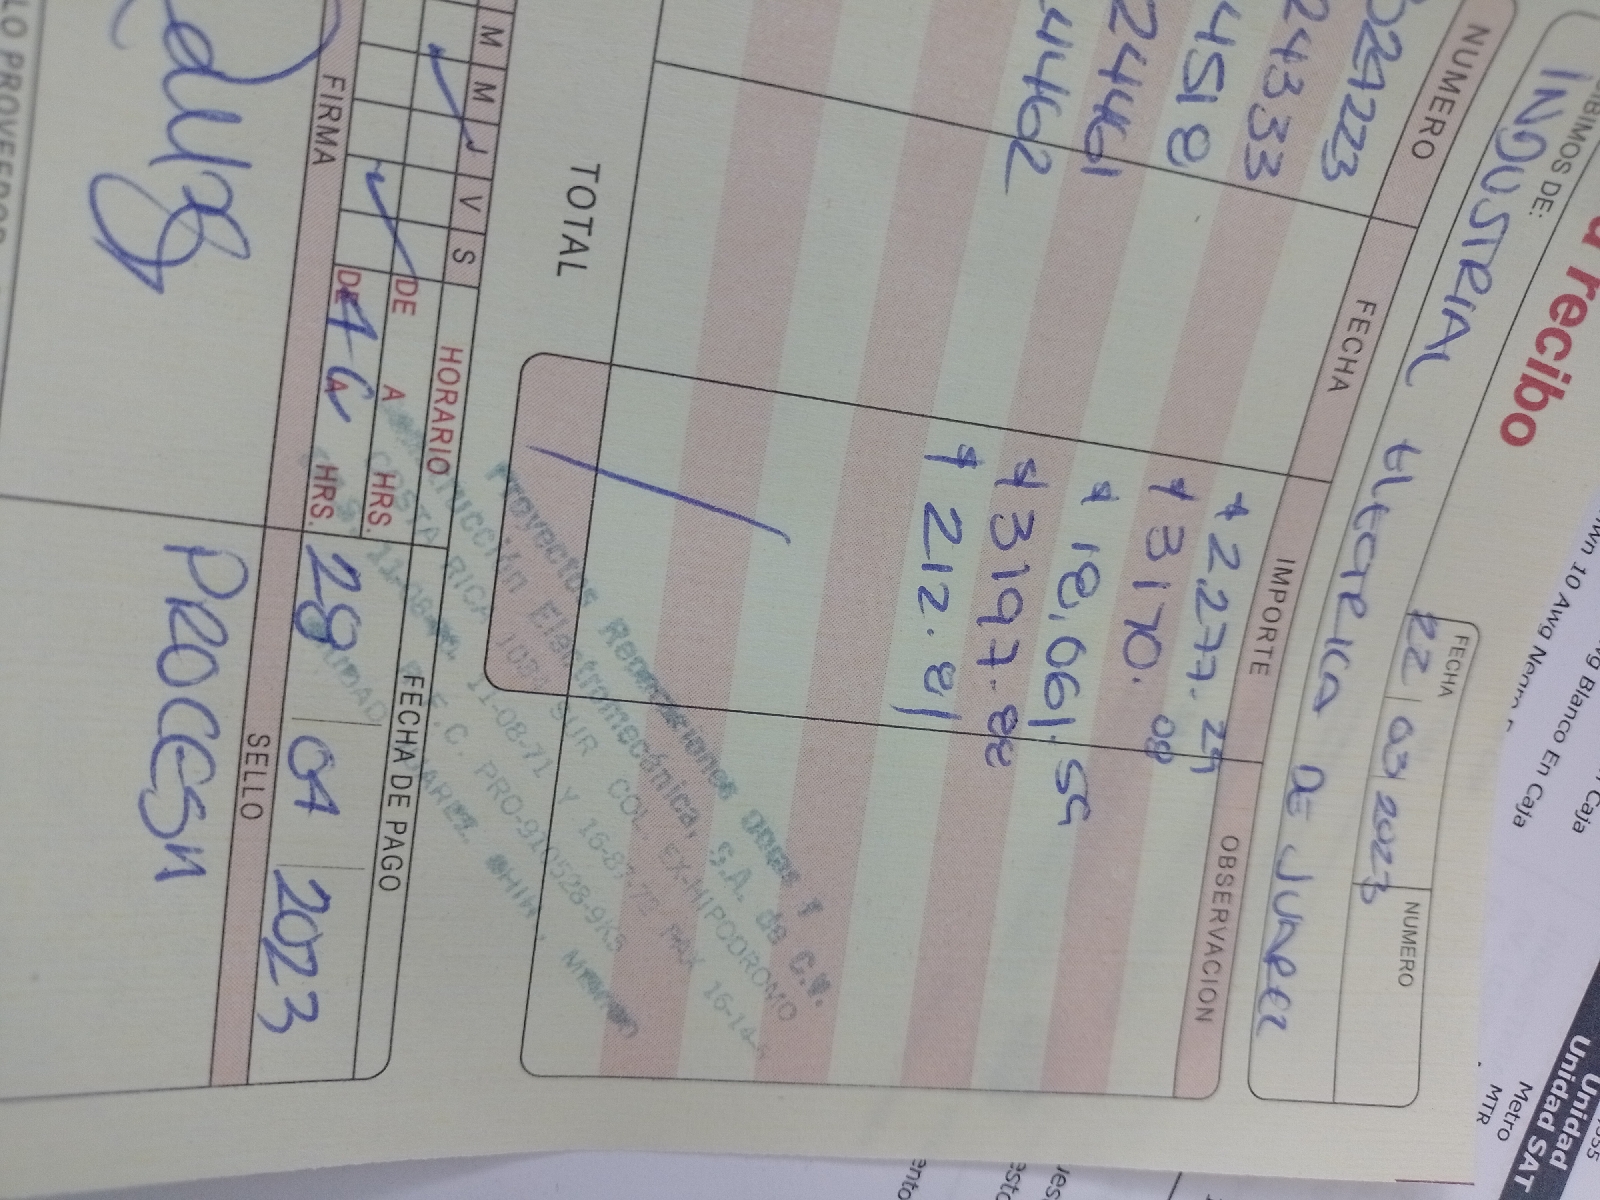 a recibo
FECHA
22 03 2023
NUMERO
IBIMOS DE:
INDUSTRIAL ELECTRICA DE JUAREZ
NUMERO FECHA IMPORTE OBSERVACION
024223 $ 2,277.29
24333 $ 3170.08
4518 $ 18,061.59
24461 $ 3197.88
4462 $ 212.81
TOTAL
Proyectos Remociones Obras Y
Construcción Electromecánica, S.A. de C.V.
COSTA RICA SUR COL. EX-HIPODROMO
11-08-71 Y 16-87-72 FAX 16-14-
R.F.C. PRO-910528-9K3
M M J V S HORARIO
DE A HRS.
DE 4 A 6 HRS.
FECHA DE PAGO
28 04 2023
FIRMA
SELLO
PROCESA
LO PROVEEDOR
wn 10 Awg Negro
g Blanco En Caja
Caja
En Caja
Unidad
Unidad SAT
Metro
MTR